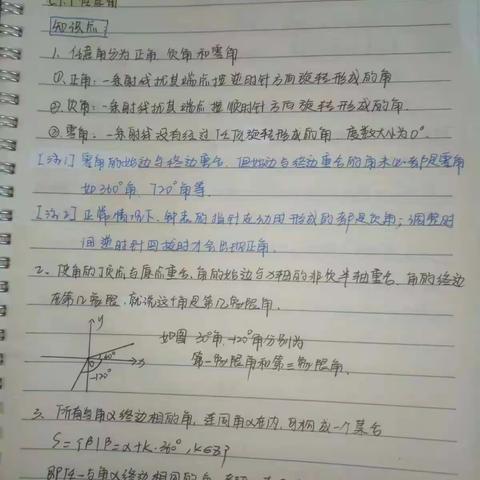 知识点:
1. 任意角分为正角 负角和零角
①正角:一条射线绕其端点按逆时针方向旋转形成的角
②负角:一条射线绕其端点按顺时针方向旋转形成的角.
③零角:一条射线没有经过任何旋转形成的角 度数大小为0°.
[注1] 零角的始边与终边重合,但始边与终边重合的角未必都是零角
如360°角、720°角等.
[注2] 正常情况下,钟表的指针走动时形成的都是负角;调整时
间逆时针回拨时才会出现正角.
2、使角的顶点与原点重合,角的始边与x轴的非负半轴重合、角的终边
在第几象限,就说这个角是第几象限角.
y
如图 30°角、-120°角分别为
x
-120°
第一象限角和第三象限角.
3、所有与角α终边相同的角,连同角α在内,可构成一个集合
S={β|β=α+k·360°,k∈Z}
即任一与角α终边相同的角